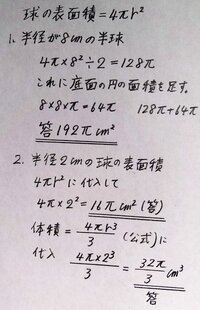 球の表面積=4πr²
1. 半径が8cmの半球
4π×8²÷2=128π
これに底面の円の面積を足す。
8×8×π=64π 128π+64π
答 192πcm²
2. 半径2cmの球の表面積
4πr²に代入して
4π×2²=16πcm²(答)
体積=4πr³/3(公式)に
代入 4π×2³/3=32π/3cm³
答